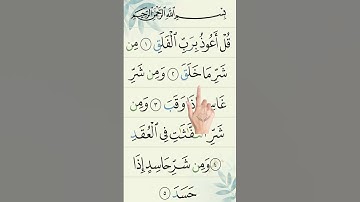 بِسْمِ اللَّهِ الرَّحْمَٰنِ الرَّحِيمِ
قُلْ أَعُوذُ بِرَبِّ الْفَلَقِ ١ مِن
شَرِّ مَا خَلَقَ ٢ وَمِن شَرِّ
إِذَا وَقَبَ ٣ وَمِن
شَرِّ النَّفَّاثَاتِ فِي الْعُقَدِ
٤ وَمِن شَرِّ حَاسِدٍ إِذَا
حَسَدَ ٥